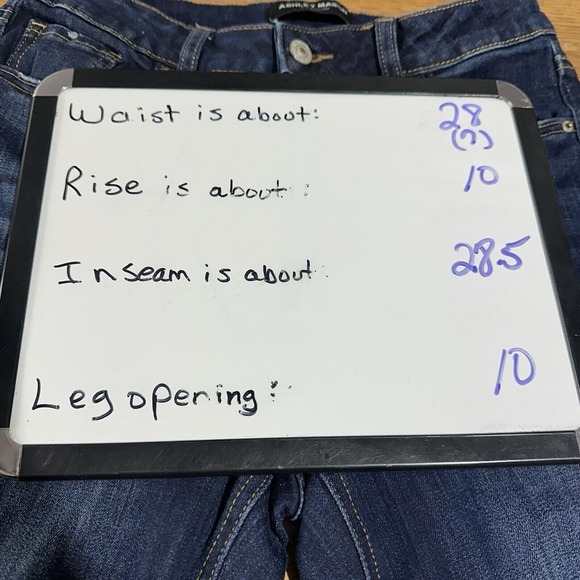 ASHLEY MASON
Waist is about: 28
(7)
Rise is about: 10
Inseam is about: 28.5
Leg opening: 10